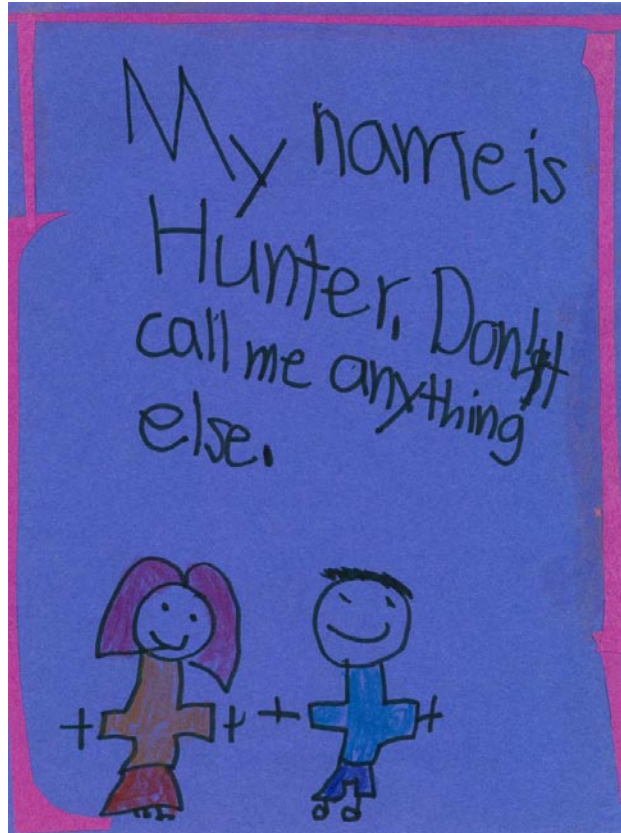 My name is
Hunter. Don't
call me anything
else.